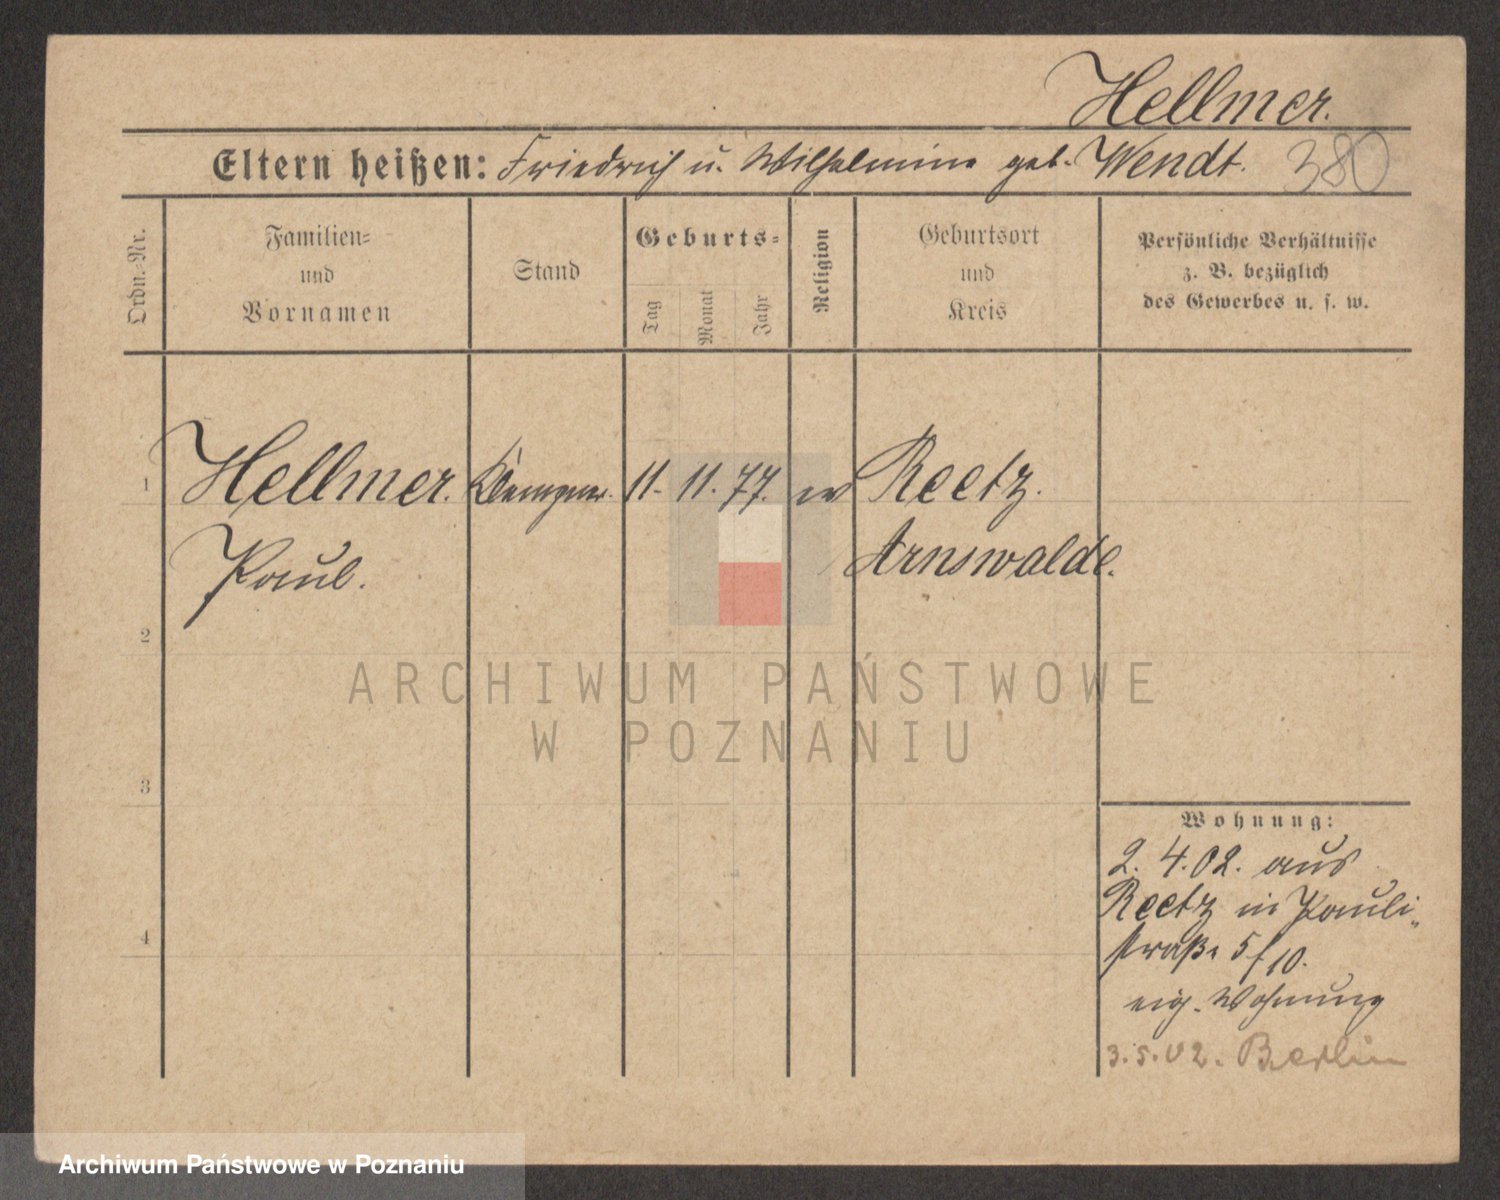 Hellmer.
Eltern heißen: Friedrich u. Wilhelmine geb. Wendt. 380
Ordn.-Nr.
Familien-
und
Vornamen
Stand
Geburts-
Tag
Monat
Jahr
Religion
Geburtsort
und
Kreis
Persönliche Verhältnisse
z. B. bezüglich
des Gewerbes u. s. w.
1 Hellmer. Klempner. 11. 11. 77. ev Reetz.
Paul. Arnswalde.
2
3
4
Wohnung:
2. 4. 02. aus
Reetz in Pauli-
straße 5/10.
eig. Wohnung
3. 5. 02. Berlin
ARCHIWUM PAŃSTWOWE
W POZNANIU
Archiwum Państwowe w Poznaniu